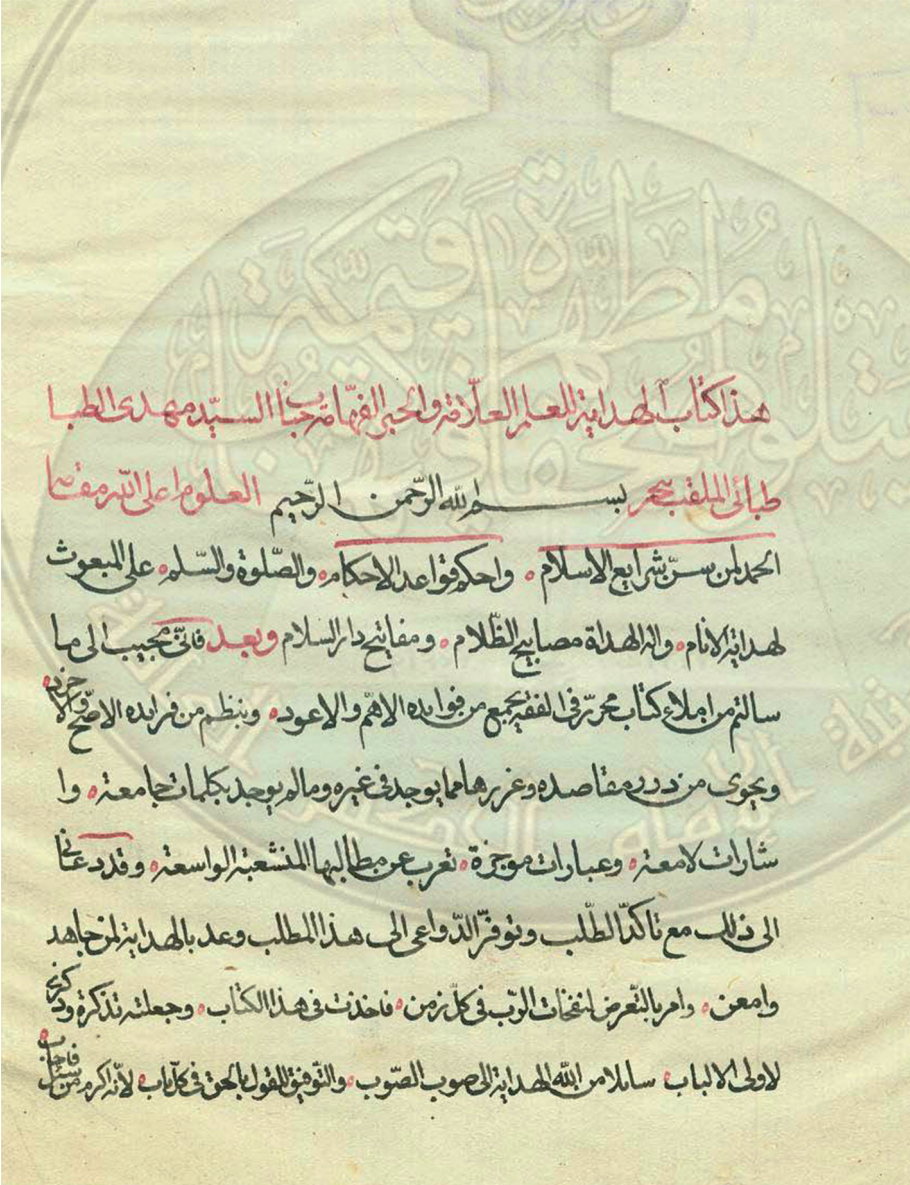 هذا كتاب الهداية للعلم العلّامة والحبر الفهّامة جناب السيّد مهدى الطبا
طبائى الملقب ببحر بسم الله الرّحمن الرّحيم العلوم اعلى الله مقامه
الحمد لمن سنّ شرايع الاسلام ه واحكم قواعد الاحكام ه والصّلوة والسّلم ه على المبعوث
لهداية الانام ه واله الهداة مصابيح الظّلام ه ومفاتيح دار السلام وبعد فانّى مجيب الى ما
سالتم من املاء كتاب محرّر فى الفقه يجمع من فوايده الاهمّ والاعود ه وينظم من فرايده الاصحّ والاجود ه
ويحوى من درر مقاصده وغررها مما يوجد فى غيره ومالم يوجد بكلمات جامعة ه وا
شارات لامعة ه وعبارات موجزة ه تعرب عن مطالبها المنشعبة الواسعة ه وقد دعانى
الى ذلك مع تاكدّ الطّلب وتوفّر الدّواعى الى هذا المطلب وعد بالهداية لمن جاهد
وامعن ه وامر بالتّعرض لنفحات الرّب فى كلّ زمن ه فاخذت فى هذا الكتاب ه وجعلته تذكرة وذكرى
لاولى الالباب ه سايلا من الله الهداية الى صوب الصّوب ه والتّوفيق للقول بالحق فى كلّ باب ه لانّه اكرم من سئل فاجاب ه